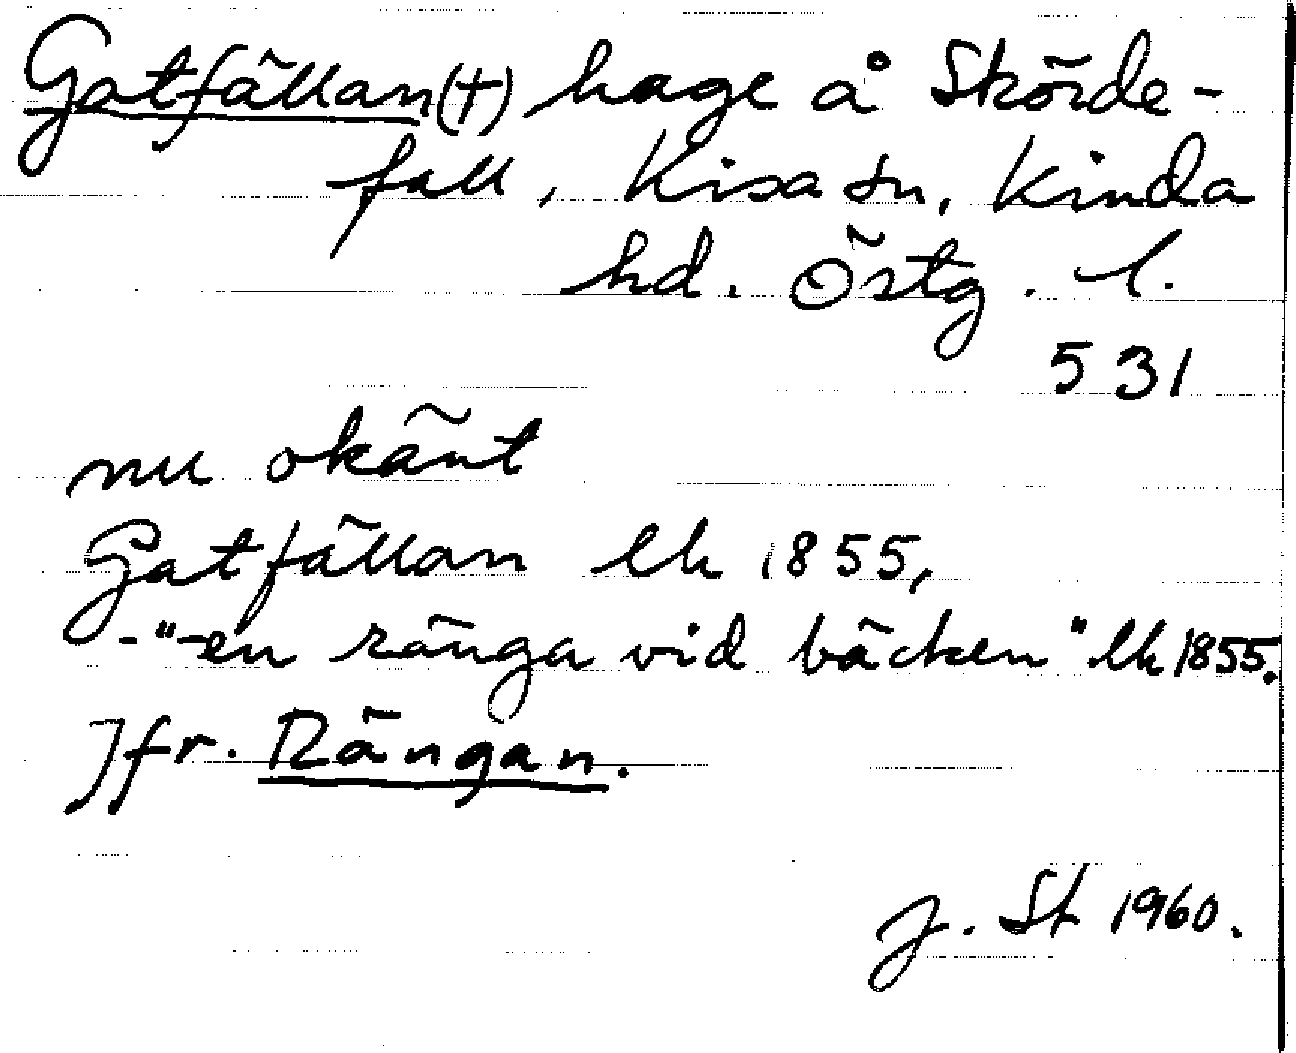 Gatfällan (†) hage å Skörde-
fall, Kisa sn, Kinda
hd. Östg. l.
531
nu okänt
Gatfällan lk 1855,
-"-en ränga vid bäcken" lk 1855.
Jfr. Rängan.
J. St 1960.